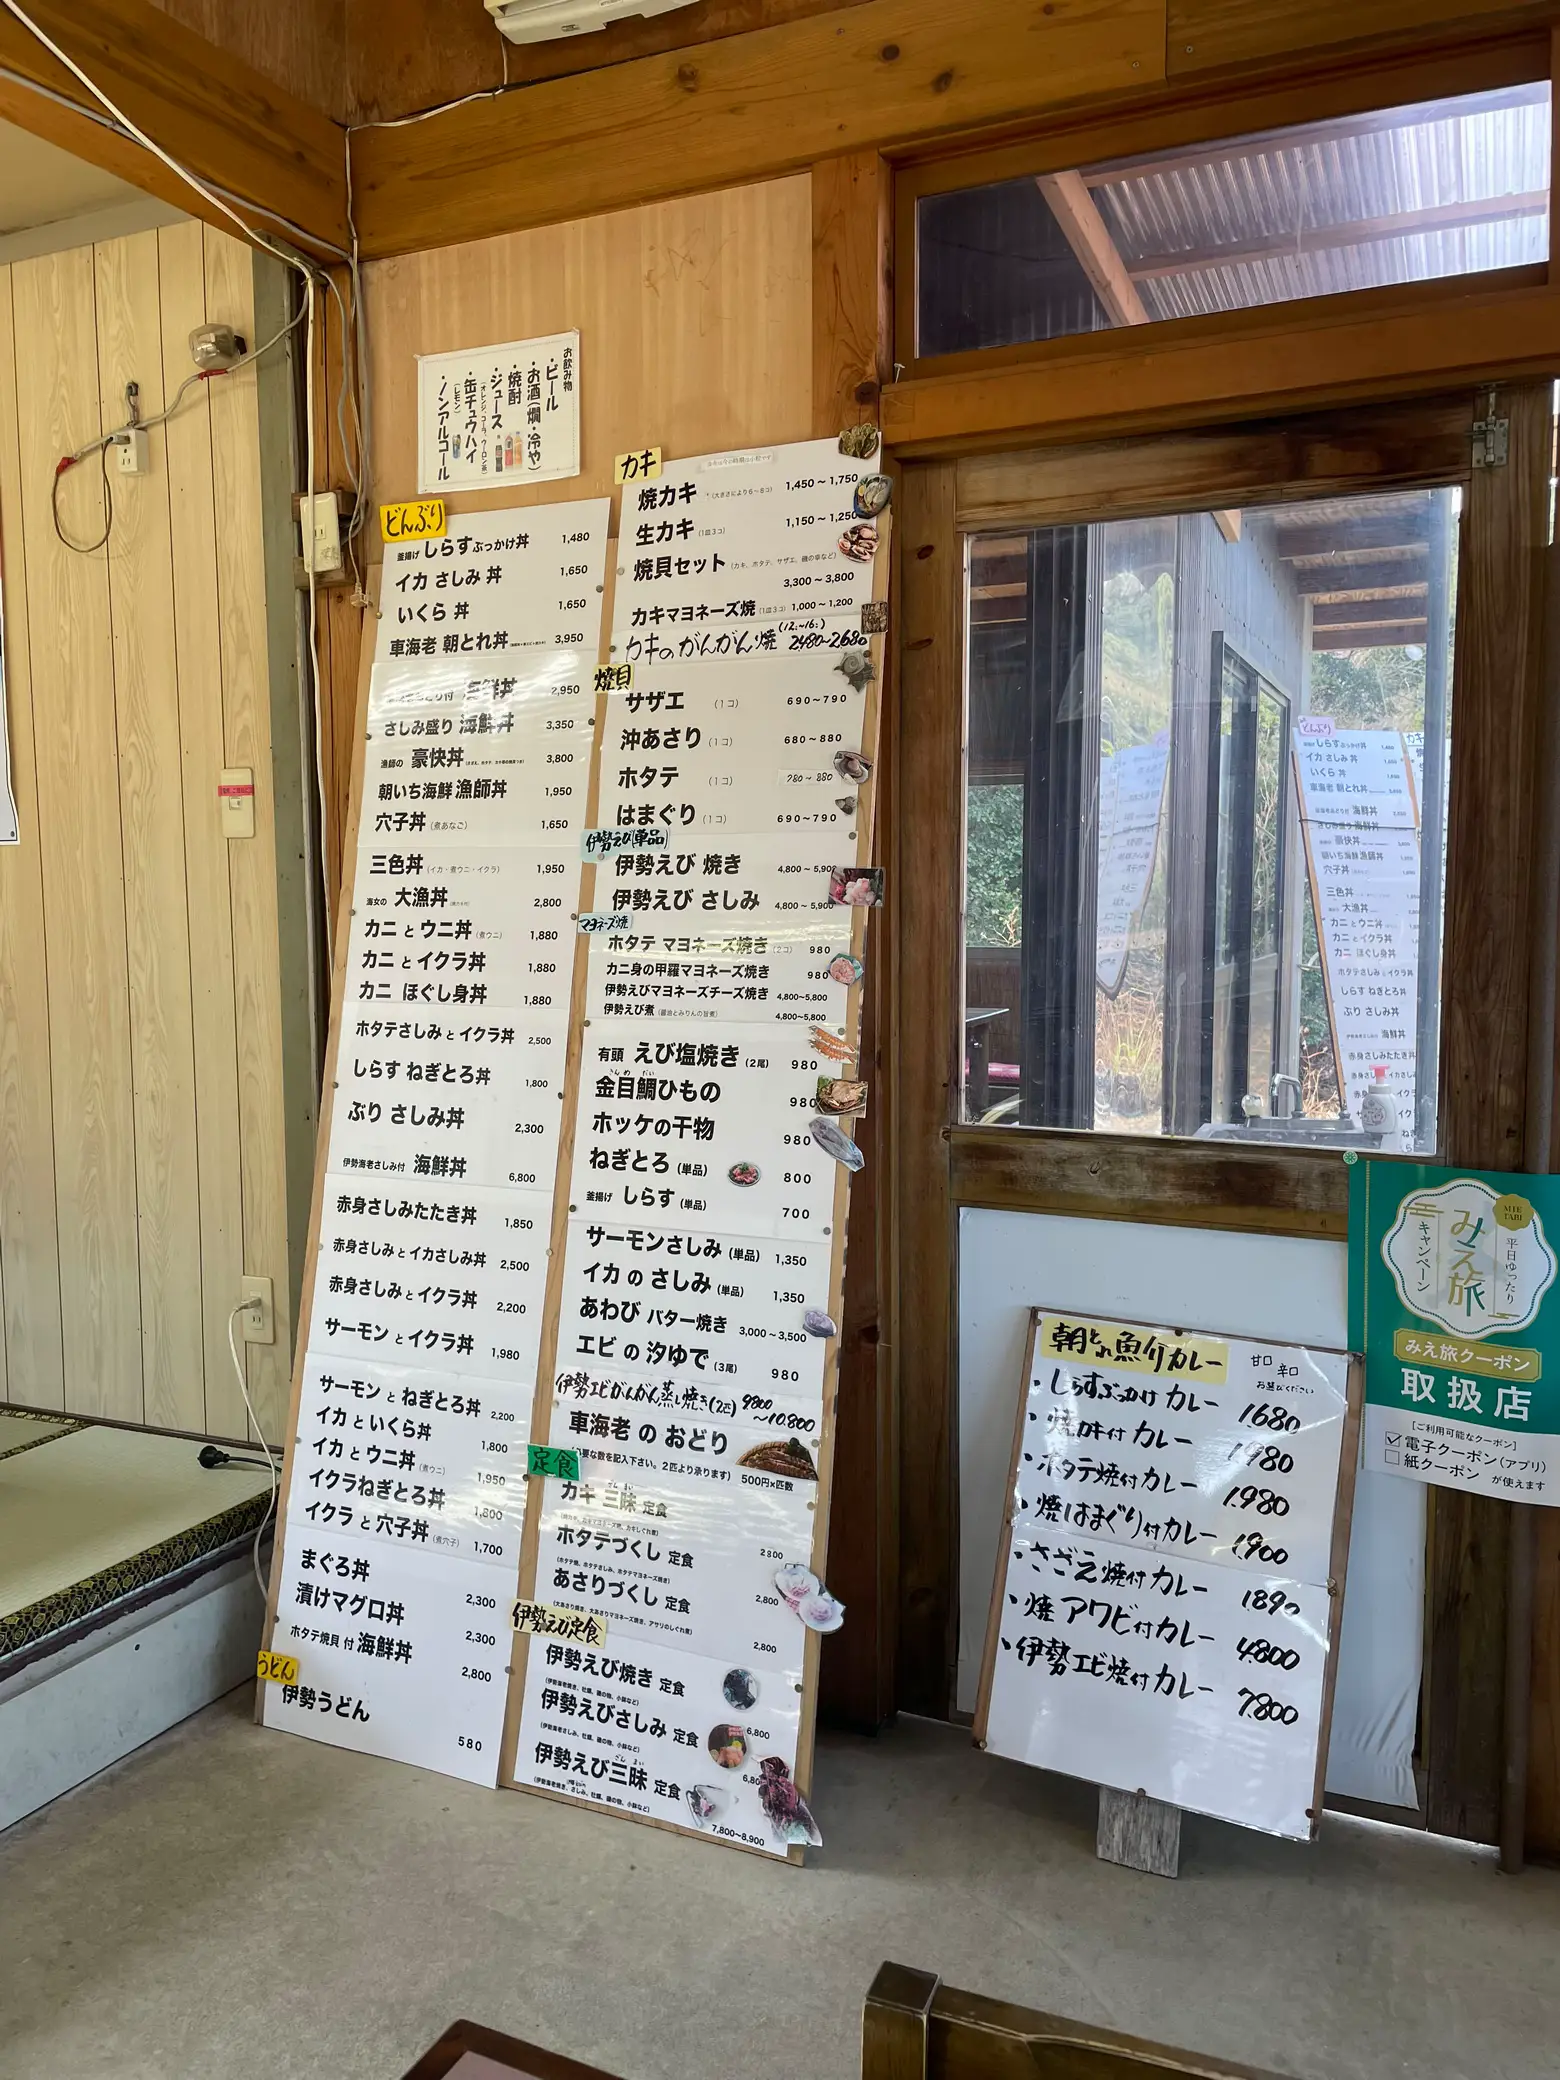 お飲み物
・ビール
・お酒(燗・冷や)
・焼酎
・ジュース
(オレンジ、コーラ、ウーロン茶)
・缶チュウハイ
(レモン)
・ノンアルコール
どんぶり
釜揚げ しらすぶっかけ丼 1,480
イカ さしみ 丼 1,650
いくら 丼 1,650
車海老 朝とれ丼 3,950
海鮮丼 2,950
さしみ盛り 海鮮丼 3,350
漁師の 豪快丼 3,800
朝いち海鮮 漁師丼 1,950
穴子丼 (煮あなご) 1,650
三色丼 (イカ・煮ウニ・イクラ) 1,950
海女の 大漁丼 2,800
カニ と ウニ丼 (煮ウニ) 1,880
カニ と イクラ丼 1,880
カニ ほぐし身丼 1,880
ホタテさしみ と イクラ丼 2,500
しらす ねぎとろ丼 1,800
ぶり さしみ丼 2,300
伊勢海老さしみ付 海鮮丼 6,800
赤身さしみたたき丼 1,850
赤身さしみ と イカさしみ丼 2,500
赤身さしみ と イクラ丼 2,200
サーモン と イクラ丼 1,980
サーモン と ねぎとろ丼 2,200
イカ と いくら丼 1,800
イカ と ウニ丼 (煮ウニ) 1,950
イクラねぎとろ丼 1,800
イクラ と 穴子丼 (煮穴子) 1,700
まぐろ丼 2,300
漬けマグロ丼 2,300
ホタテ焼貝 付 海鮮丼 2,800
うどん
伊勢うどん 580
カキ
焼カキ (大きさにより6～8コ) 1,450～1,750
生カキ (1皿3コ) 1,150～1,250
焼貝セット (カキ、ホタテ、サザエ、磯の幸など)
3,300～3,800
カキマヨネーズ焼 (1皿3コ) 1,000～1,200
カキのがんがん焼 (12.～16.) 2480～2680
焼貝
サザエ (1コ) 690～790
沖あさり (1コ) 680～880
ホタテ (1コ) 780～880
はまぐり (1コ) 690～790
伊勢えび(単品)
伊勢えび 焼き 4,800～5,900
伊勢えび さしみ 4,800～5,900
マヨネーズ焼
ホタテ マヨネーズ焼き (2コ) 980
カニ身の甲羅マヨネーズ焼き 980
伊勢えびマヨネーズチーズ焼き 4,800～5,800
伊勢えび煮 (醤油とみりんの旨煮) 4,800～5,800
有頭 えび塩焼き (2尾) 980
きんめ だい
金目鯛ひもの 980
ホッケの干物 980
ねぎとろ (単品) 800
釜揚げ しらす (単品) 700
サーモンさしみ (単品) 1,350
イカ の さしみ (単品) 1,350
あわび バター焼き 3,000～3,500
エビ の 汐ゆで (3尾) 980
伊勢エビがんがん蒸し焼き(2匹) 9800～10.800
車海老 の おどり
必要な数を記入下さい。2匹より承ります) 500円×匹数
定食
ざん まい
カキ 三昧 定食 2800
ホタテづくし 定食 2,800
(ホタテ焼、ホタテさしみ、ホタテマヨネーズ焼き)
あさりづくし 定食 2,800
(大あさり焼き、大あさりマヨネーズ焼き、アサリのしぐれ煮)
伊勢えび定食
伊勢えび焼き 定食 6,800
伊勢えびさしみ 定食 6,80
ざん まい
伊勢えび三昧 定食 7,800～8,900
朝とれ魚介カレー 甘口 辛口
お選びください
・しらすぶっかけ カレー 1680
・焼カキ付 カレー 1980
・ホタテ焼付カレー 1980
・焼はまぐり付カレー 1900
・さざえ焼付カレー 1890
・焼アワビ付カレー 4800
・伊勢エビ焼付カレー 7800
MIE TABI
平日ゆったり
みえ旅
キャンペーン
みえ旅クーポン
取扱店
[ご利用可能なクーポン]
電子クーポン(アプリ)
紙クーポン が使えます
どんぶり
しらすぶっかけ丼
イカ さしみ 丼
いくら 丼
車海老 朝とれ丼
海鮮丼
さしみ盛り 海鮮丼
豪快丼
朝いち海鮮 漁師丼
穴子丼
三色丼
大漁丼
カニ と ウニ丼
カニ と イクラ丼
カニ ほぐし身丼
ホタテさしみ と イクラ丼
しらす ねぎとろ丼
ぶり さしみ丼
海鮮丼
赤身さしみたたき丼